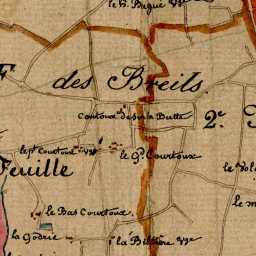 le G. Bagué
F
des Breils
Contoux de sur la Butte
2e
le pt. Courtoux
le Gd. Courtoux
Feuille
le Bas Courtoux.
le m
la Godrie
la Billière